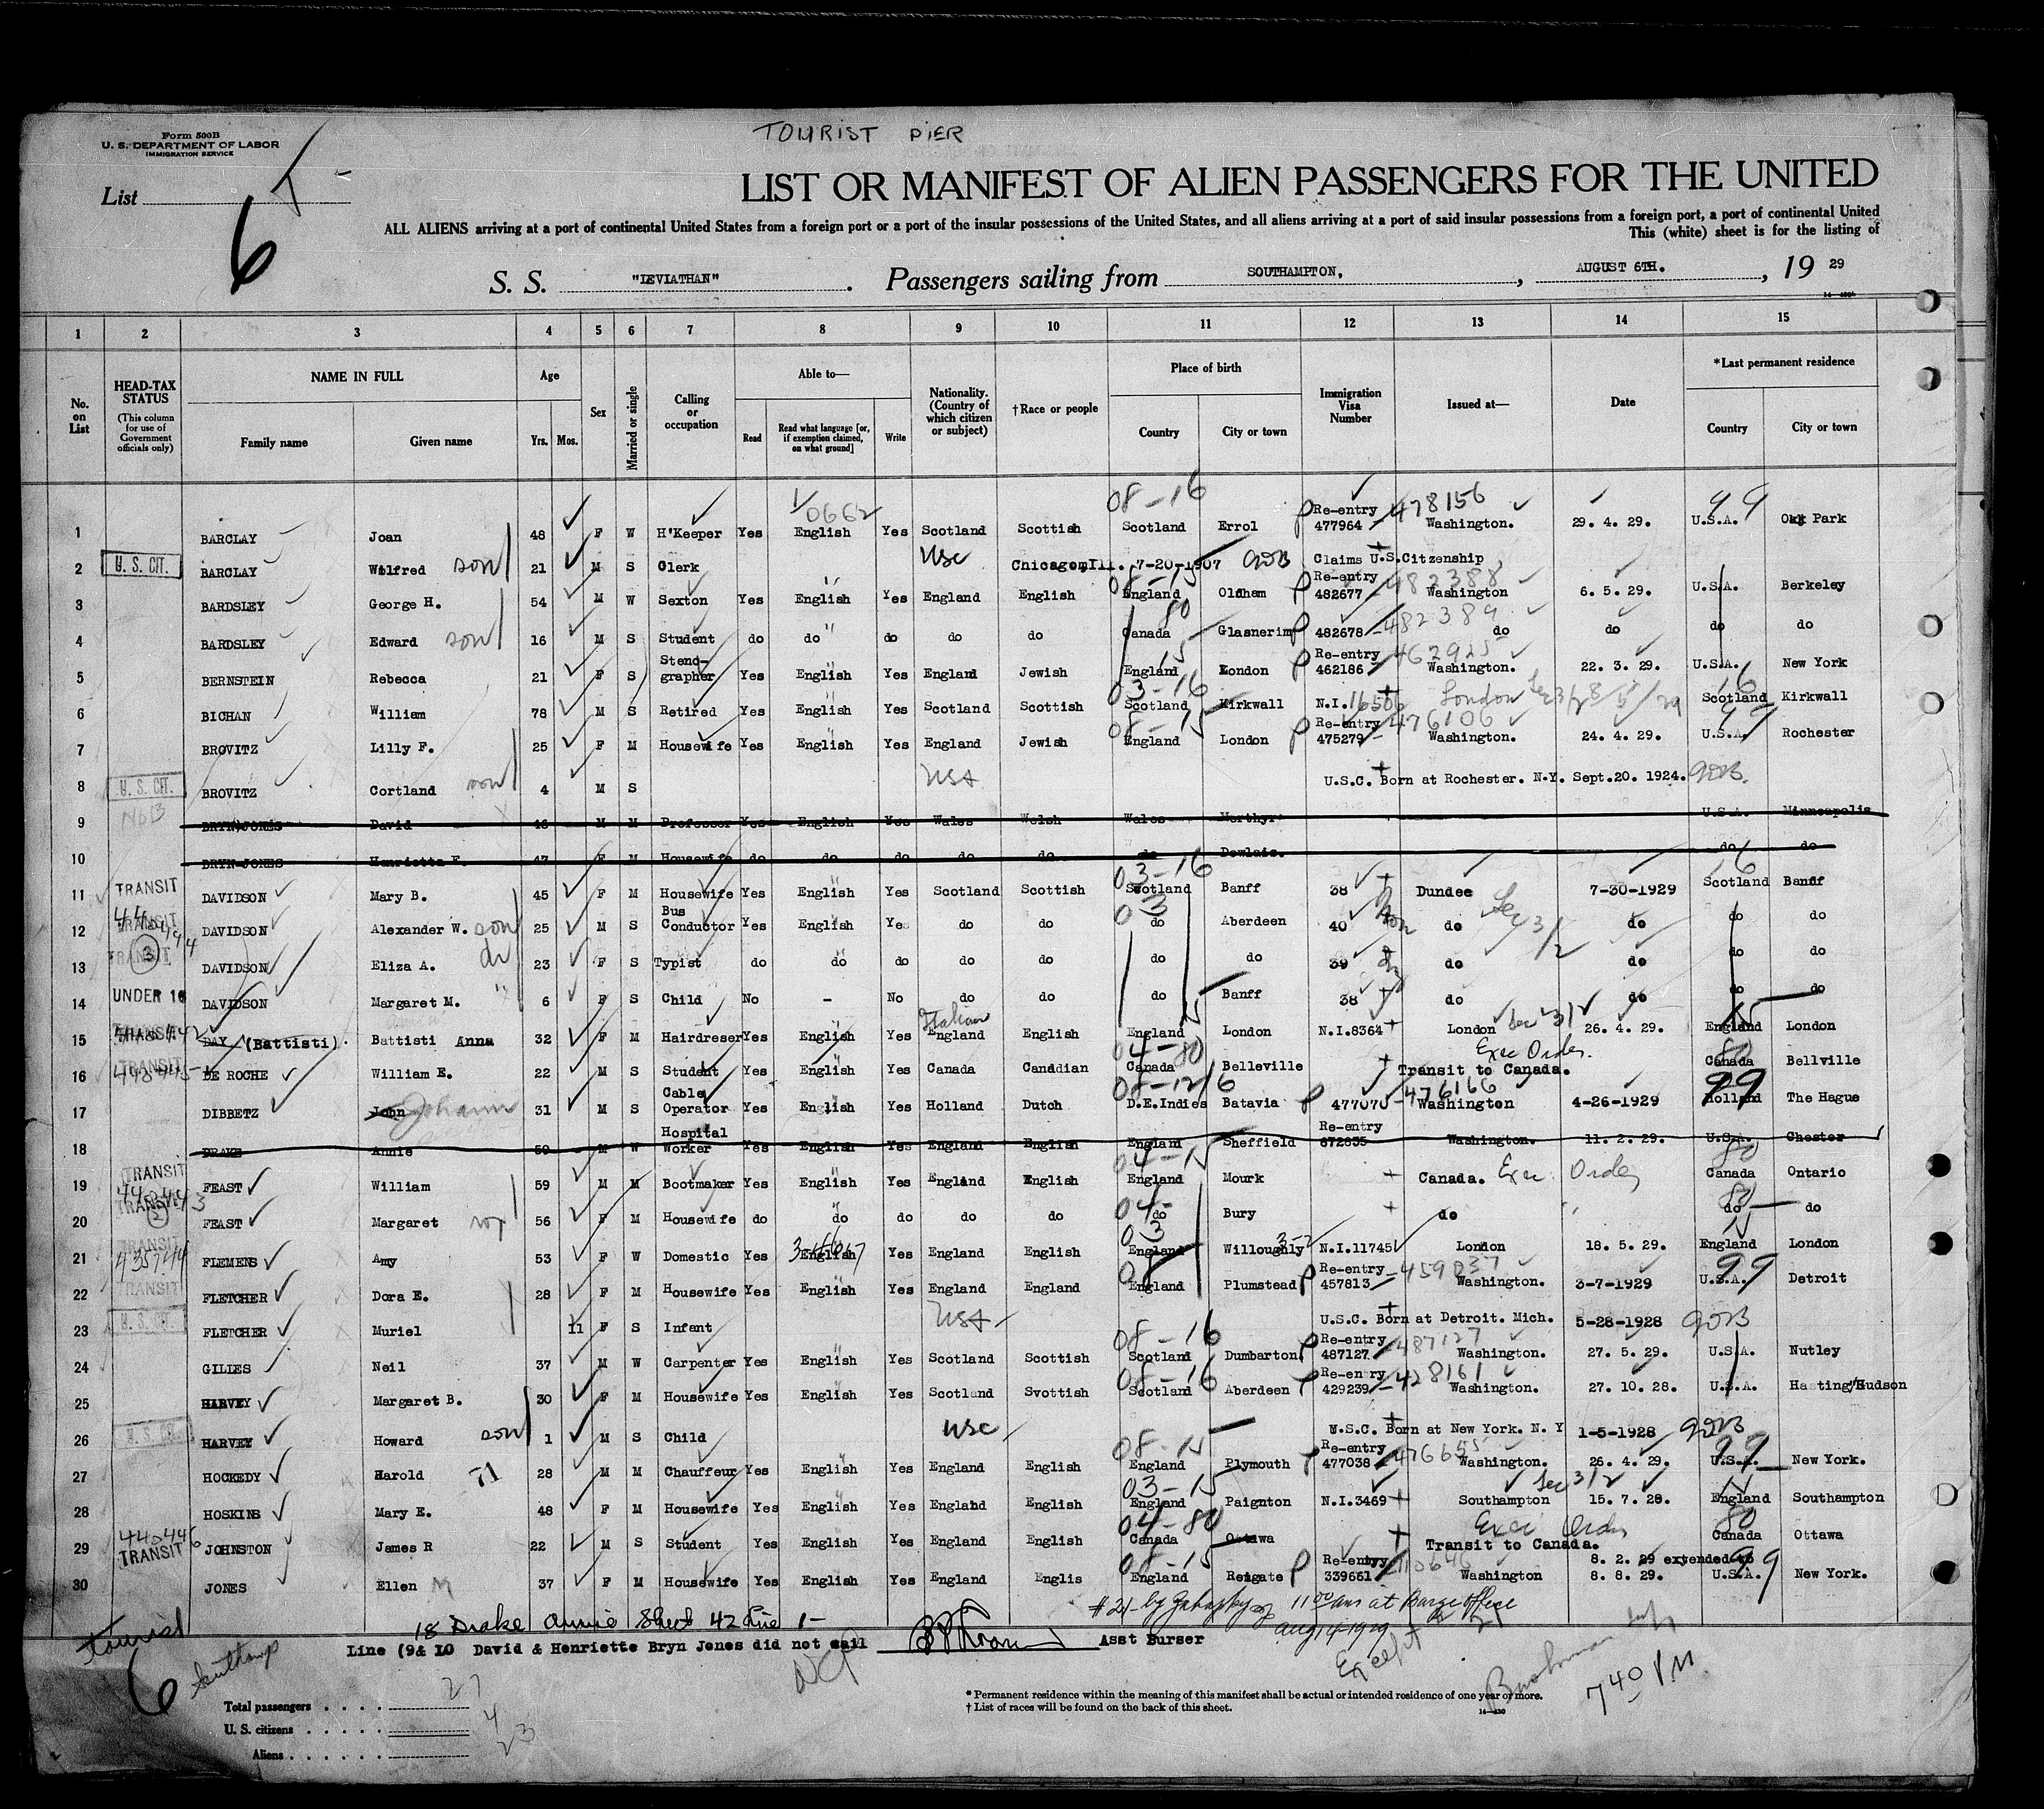 TOURIST PIER
Form 500B
U. S. DEPARTMENT OF LABOR
IMMIGRATION SERVICE
List
6
LIST OR MANIFEST OF ALIEN PASSENGERS FOR THE UNITED
ALL ALIENS arriving at a port of continental United States from a foreign port or a port of the insular possessions of the United States, and all aliens arriving at a port of said insular possessions from a foreign port, a port of continental United
This (white) sheet is for the listing of
S. S. "LEVIATHAN". Passengers sailing from SOUTHAMPTON, AUGUST 6TH., 19 29
1 2 3 4 5 6 7 8 9 10 11 12 13 14 15
No. on List
HEAD-TAX STATUS (This column for use of Government officials only)
NAME IN FULL Family name Given name
Age Yrs. Mos.
Sex
Married or single
Calling or occupation
Able to— Read Read what language [or, if exemption claimed, on what ground] Write
Nationality. (Country of which citizen or subject)
†Race or people
Place of birth Country City or town
Immigration Visa Number
Issued at—
Date
*Last permanent residence Country City or town
1 BARCLAY Joan 48 F W H'Keeper Yes English 0662 Yes Scotland Scottish 08-16 Scotland Errol Re-entry 477964 478156 Washington. 29. 4. 29. U.S.A. 99 Oak Park
2 U. S. CIT. BARCLAY Wilfred son 21 M S Clerk USC Chicago, Ill. 7-20-1907 Claims U.S.Citizenship
3 BARDSLEY George H. 54 M W Sexton Yes English Yes England English 08-15 England Oldham Re-entry 482677 482388 Washington 6. 5. 29. U.S.A. Berkeley
4 BARDSLEY Edward son 16 M S Student do do do do do Canada 80 Glasnerim 482678 482389 do do do do
5 BERNSTEIN Rebecca 21 F S Steno-grapher Yes English Yes England Jewish England 15 London Re-entry 462186 462925 Washington. 22. 3. 29. U.S.A. New York
6 BICHAN William 78 M S Retired Yes English Yes Scotland Scottish 03-16 Scotland Kirkwall N.I. London Scotland 16 Kirkwall
7 BROVITZ Lilly F. 25 F M Housewife Yes English Yes England Jewish 08-15 England London Re-entry 475279 476106 Washington. 24. 4. 29. U.S.A. 99 Rochester
8 U. S. CIT. BROVITZ Cortland son 4 M S USA U.S.C. Born at Rochester. N.Y. Sept.20. 1924.
9 BRYN-JONES David 46 M M Professor Yes English Yes Wales Welsh Wales Merthyr U.S.A. Minneapolis
10 BRYN-JONES Henrietta F. 47 F M Housewife do do do do do do Dowlais. do do
11 TRANSIT DAVIDSON Mary B. 45 F M Housewife Yes English Yes Scotland Scottish 03-16 Scotland Banff 38 Dundee 7-30-1929 Scotland 16 Banff
12 TRANSIT DAVIDSON Alexander W. son 25 M S Bus Conductor Yes English Yes do do 03 do Aberdeen 40 do Sec 3/2 do do do
13 TRANSIT DAVIDSON Eliza A. 23 F S Typist do do do do do do do 39 do do do do
14 UNDER 16 DAVIDSON Margaret M. 6 F S Child No - No do do do Banff 38 do do do do
15 TRANSIT DAY (Battisti). Battisti Anna 32 F M Hairdreser Yes English Yes Italian England English England 15 London N.I.8364 London Sec 3/2 26. 4. 29. England 15 London
16 TRANSIT DE ROCHE William E. 22 M S Student Yes English Yes Canada Canddian 04-80 Canada Belleville Exec Order. Transit to Canada. Canada 80 Bellville
17 DIBBETZ John Johann 31 M S Cable Operator Yes English Yes Holland Dutch 08-12/6 D.E.Indies Batavia 477070 476166 Washington 4-26-1929 Holland 99 The Hague
18 DRAKE Annie 59 M W Hospital Worker Yes English Yes England English England Sheffield Re-entry 672835 Washington. 11. 2. 29. U.S.A. Chester
19 TRANSIT FEAST William 59 M M Bootmaker Yes English Yes England English 04-15 England Mourk Canada. Exec Order Canada 80 Ontario
20 TRANSIT FEAST Margaret 56 F M Housewife do do do do do 04- do Bury do do do
21 TRANSIT FLEMENS Amy 53 F W Domestic Yes English Yes England English 03 England Willoughly N.I.11745 London 18. 5. 29. England 15 London
22 TRANSIT FLETCHER Dora E. 28 F M Housewife Yes English Yes England England 08 England Plumstead Re-entry 457813 459037 Washington. 3-7-1929 U.S.A. 99 Detroit
23 U. S. CIT. FLETCHER Muriel 11 F S Infant USA U.S.C. Born at Detroit. Mich. 5-28-1928
24 GILIES Neil 37 M W Carpenter Yes English Yes Scotland Scottish 08-16 Scotland Dumbarton Re-entry 487127 487127 Washington. 27. 5. 29. U.S.A. Nutley
25 HARVEY Margaret B. 30 F M Housewife Yes English Yes Scotland Svottish 08-16 Scotland Aberdeen Re-entry 429239 428161 Washington. 27. 10. 28. U.S.A. Hasting/Hudson
26 U. S. CIT. HARVEY Howard son 1 M S Child USC U.S.C. Born at New York. N. Y 1-5-1928
27 HOCKEDY Harold 71 28 M M Chauffeur Yes English Yes England English 08-15 England Plymouth Re-entry 477038 476655 Washington. 26. 4. 29. U.S.A. 99 New York.
28 HOSKINS Mary E. 48 F M Housewife Yes English Yes England English 03-15 England Paignton N.I.3469 Southampton Sec 3/2 15. 7. 28. England 15 Southampton
29 TRANSIT JOHNSTON James R 22 M S Student Yes English Yes England English 04-80 Canada Ottawa Exec Order Transit to Canada. Canada 80 Ottawa
30 JONES Ellen M 37 F M Housewife Yes English Yes England Englis 08-15 England Reigate Re-entry 339661 Washington 8. 2. 29 extended to 8. 8. 29. U.S.A. 99 New York.
18 Drake Annie Sheet 42 Line 1-
11 00 am at Barge Office
Aug 14-1929
Line (9& 10 David & Henriette Bryn Jones did not sail Asst Burser
Tourist
6 Southamp
Except
7 40 PM
Total passengers . . . . 27
U. S. citizens . . . . . 4
Aliens . . . . . . 23
* Permanent residence within the meaning of this manifest shall be actual or intended residence of one year or more.
† List of races will be found on the back of this sheet.